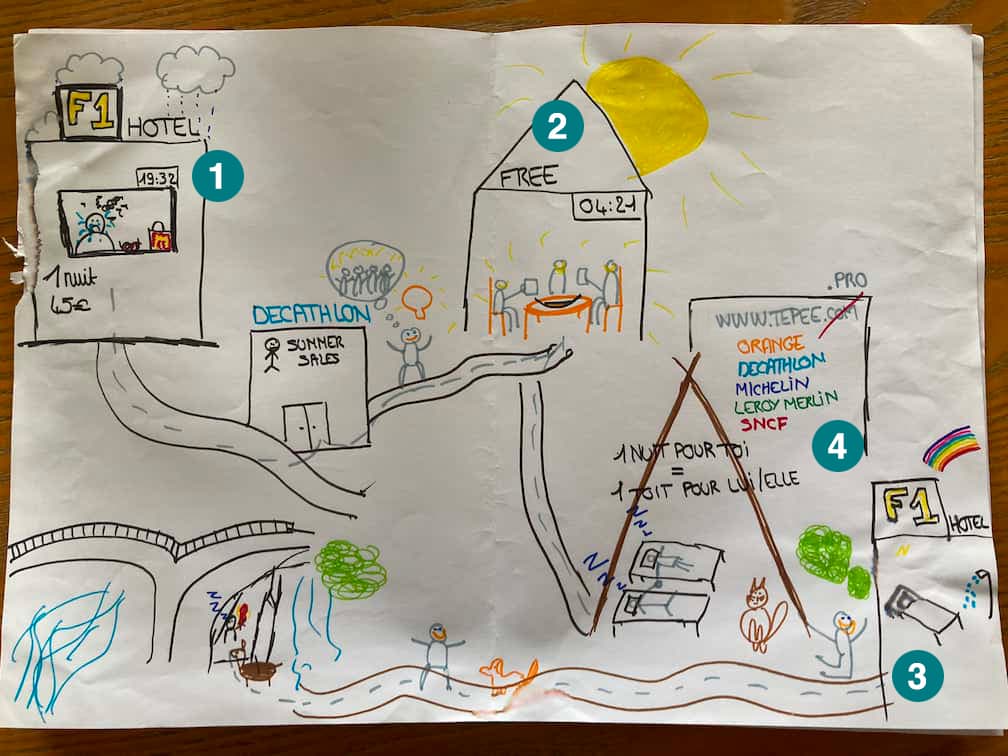 F1
HOTEL
1
19:32
1 nuit
45€
2
FREE
04:21
DECATHLON
SUMMER
SALES
.PRO
WWW.TEPEE.COM
ORANGE
DECATHLON
MICHELIN
LEROY MERLIN
SNCF
4
1 NUIT POUR TOI
=
1 TOIT POUR LUI/ELLE
zzz
zzz
F1
HOTEL
N
zzz
3